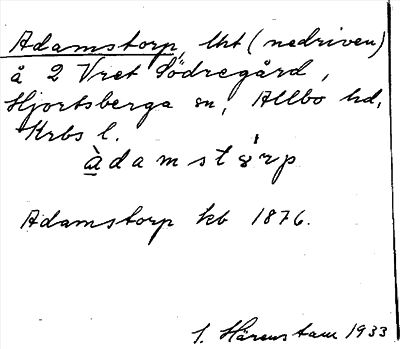 Adamstorp, lht (nedriven)
å 2 Vret Södregård,
Hjortsberga sn, Allbo hd,
Krbs l.
àdamstơrp
Adamstorp kb 1876.
1. Härenstam 1933